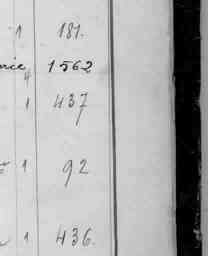 1 181.
nce 1562
4
1 437
1 92
1 436.